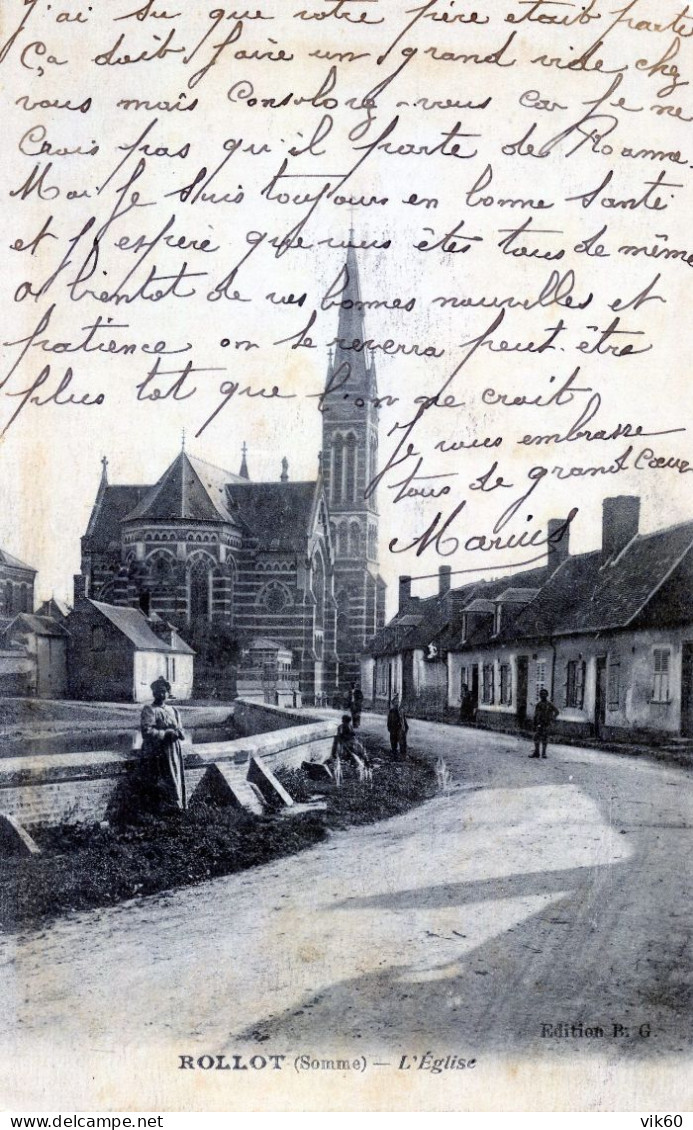 j'ai su que votre père était parti
Ça doit faire un grand vide chez
vous mais Consolez-vous car je ne
Crois pas qu'il parte de Roanne.
Moi je suis toujours en bonne Santé
et j'espère que vous êtes tous de même
a bientot de vos bonnes nouvelles et
patience on se reverra peut-être
plus tot que l'on ne croit
je vous embrasse
tous de grand Cœur
Marius
Edition B. G.
ROLLOT (Somme) — L'Église
vik60
Delcampe.net